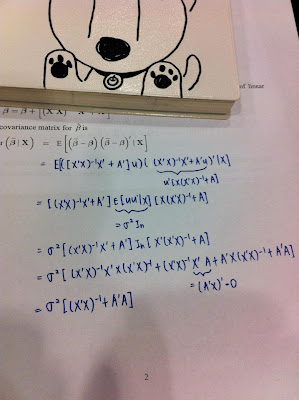 of linear
β̃ = β + [(X'X)⁻¹X' + A']u
covariance matrix for β̃ is
(β̃ | X) = E[(β̃ − β)(β̃ − β)' | X]
= E[([X'X)⁻¹X' + A']u)( (X'X)⁻¹X'+A'u)'|X]
u'[X(X'X)⁻¹+A]
= [(X'X)⁻¹X'+A'] E[uu'|X] [X(X'X)⁻¹+A]
= σ²In
= σ² [(X'X)⁻¹X' + A'] In [X'(X'X)⁻¹+A]
= σ² [(X'X)⁻¹X'X(X'X)⁻¹ + (X'X)⁻¹X'A + A'X(X'X)⁻¹ + A'A]
= (A'X)' = 0
= σ² [(X'X)⁻¹ + A'A]
2